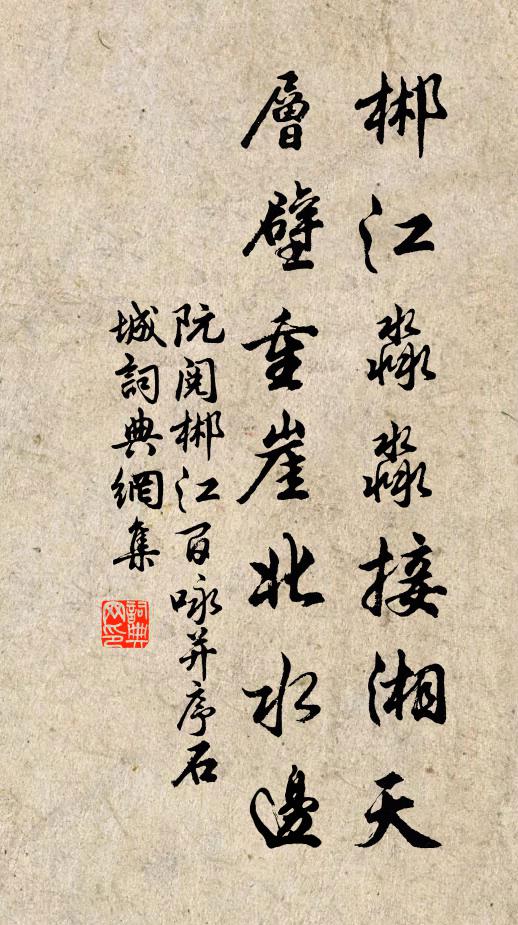 郴江淼淼接湘天
層壁重崖北水邊
阮閱郴江百咏并序石
城詞典網集
詞典网印